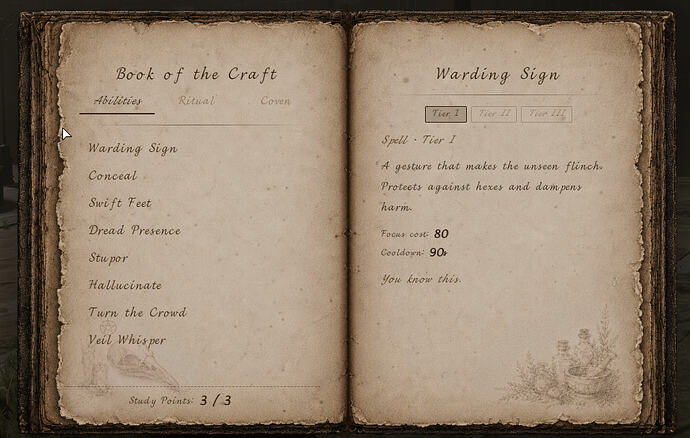 Book of the Craft
Abilities Ritual Coven
Warding Sign
Conceal
Swift Feet
Dread Presence
Stupor
Hallucinate
Turn the Crowd
Veil Whisper
Study Points: 3 / 3
Warding Sign
Tier I Tier II Tier III
Spell · Tier I
A gesture that makes the unseen flinch.
Protects against hexes and dampens
harm.
Focus cost: 80
Cooldown: 90s
You know this.